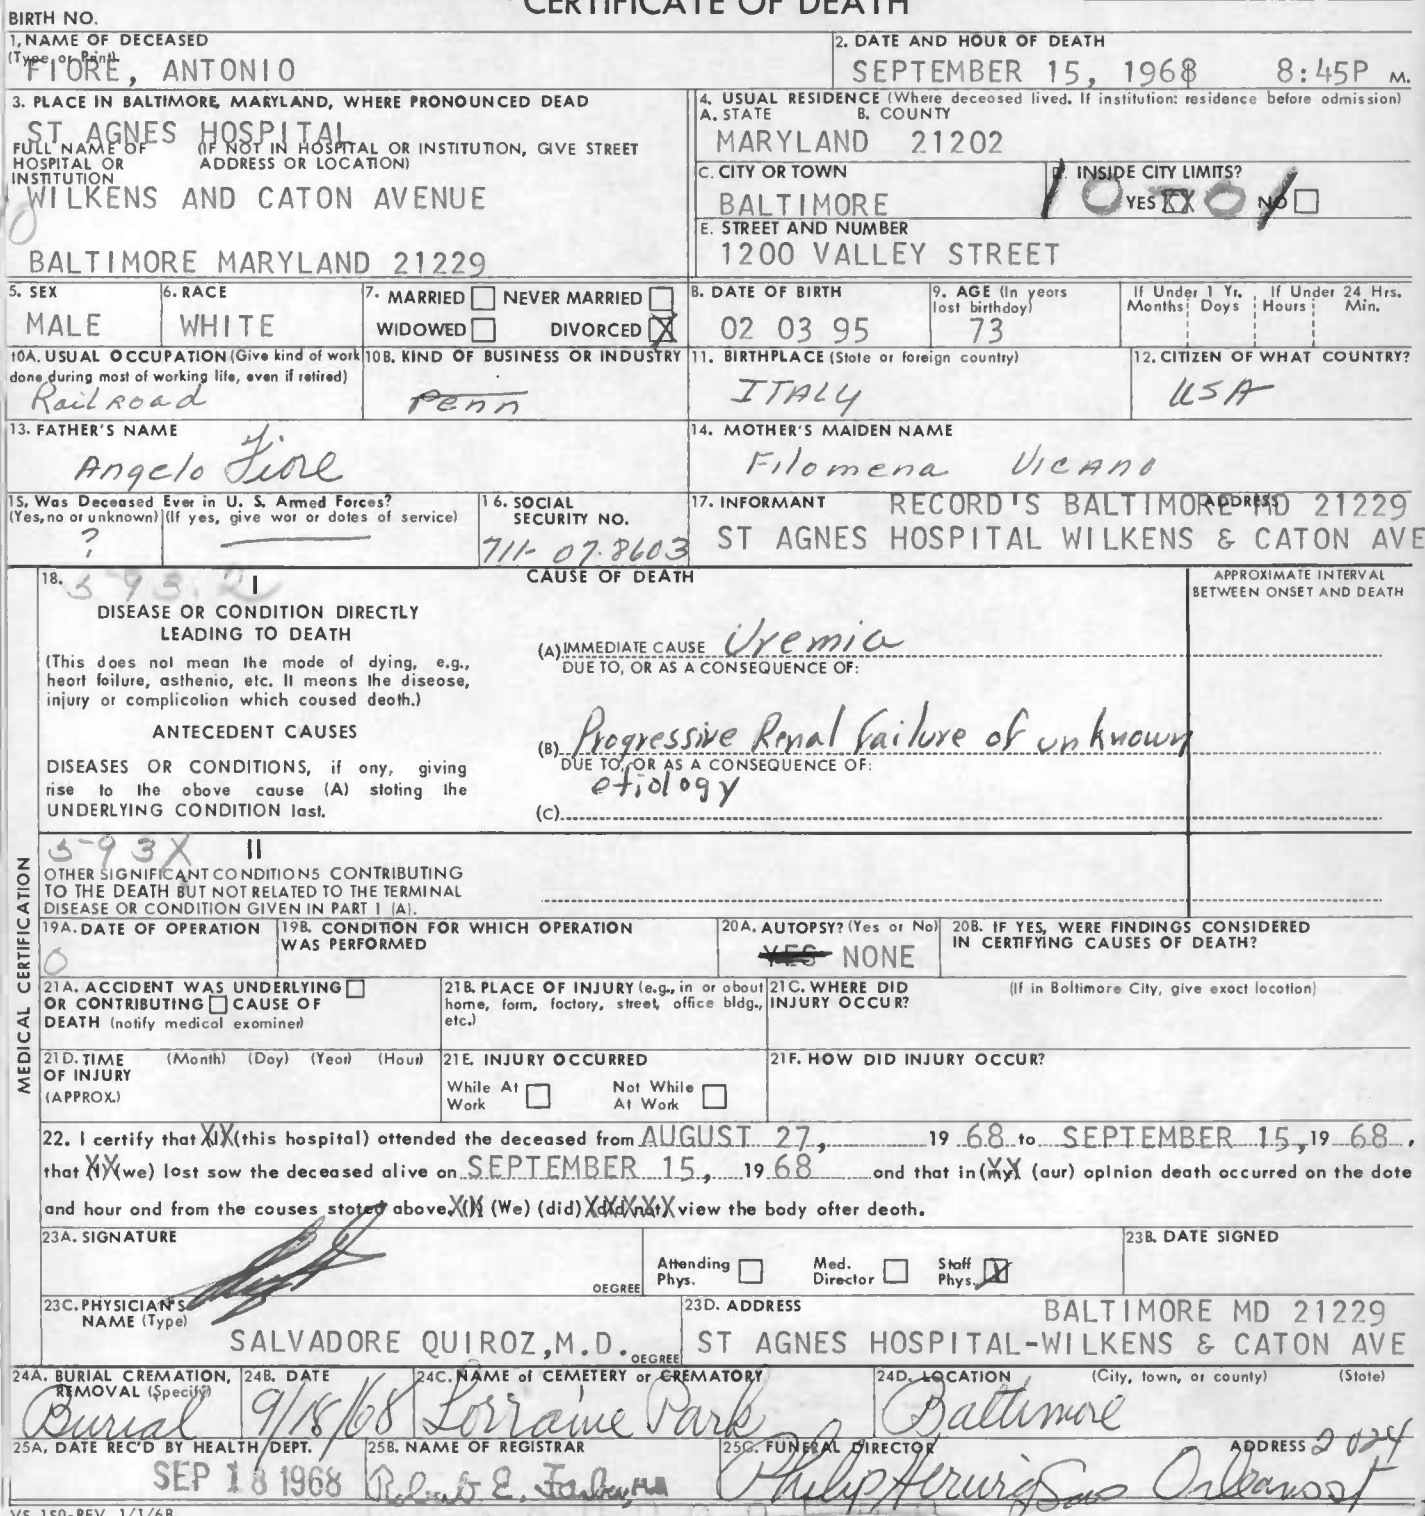 CERTIFICATE OF DEATH
BIRTH NO.
1. NAME OF DECEASED
(Type or Print)
FIORE, ANTONIO
2. DATE AND HOUR OF DEATH
SEPTEMBER 15, 1968 8:45P M.
3. PLACE IN BALTIMORE, MARYLAND, WHERE PRONOUNCED DEAD
ST AGNES HOSPITAL
FULL NAME OF HOSPITAL OR INSTITUTION
(IF NOT IN HOSPITAL OR INSTITUTION, GIVE STREET ADDRESS OR LOCATION)
WILKENS AND CATON AVENUE
BALTIMORE MARYLAND 21229
4. USUAL RESIDENCE (Where deceased lived. If institution: residence before admission)
A. STATE B. COUNTY
MARYLAND 21202
C. CITY OR TOWN
BALTIMORE
D. INSIDE CITY LIMITS?
YES XX NO
E. STREET AND NUMBER
1200 VALLEY STREET
5. SEX
MALE
6. RACE
WHITE
7. MARRIED NEVER MARRIED
WIDOWED DIVORCED X
8. DATE OF BIRTH
02 03 95
9. AGE (In years last birthday)
73
If Under 1 Yr. If Under 24 Hrs.
Months Days Hours Min.
10A. USUAL OCCUPATION (Give kind of work done during most of working life, even if retired)
Railroad
10B. KIND OF BUSINESS OR INDUSTRY
Penn
11. BIRTHPLACE (State or foreign country)
ITALY
12. CITIZEN OF WHAT COUNTRY?
USA
13. FATHER'S NAME
Angelo Fiore
14. MOTHER'S MAIDEN NAME
Filomena Vicano
15. Was Deceased Ever in U. S. Armed Forces?
(Yes, no or unknown) (If yes, give war or dates of service)
?
16. SOCIAL SECURITY NO.
711-07-8603
17. INFORMANT ADDRESS
RECORD'S BALTIMORE MD 21229
ST AGNES HOSPITAL WILKENS & CATON AVE
MEDICAL CERTIFICATION
18. 593.2 I
CAUSE OF DEATH
APPROXIMATE INTERVAL BETWEEN ONSET AND DEATH
DISEASE OR CONDITION DIRECTLY
LEADING TO DEATH
(This does not mean the mode of dying, e.g.,
heart failure, asthenia, etc. It means the disease,
injury or complication which caused death.)
(A) IMMEDIATE CAUSE Uremia
DUE TO, OR AS A CONSEQUENCE OF:
ANTECEDENT CAUSES
DISEASES OR CONDITIONS, if any, giving
rise to the above cause (A) stating the
UNDERLYING CONDITION last.
(B) Progressive Renal failure of unknown
DUE TO, OR AS A CONSEQUENCE OF:
etiology
(C)
593X II
OTHER SIGNIFICANT CONDITIONS CONTRIBUTING
TO THE DEATH BUT NOT RELATED TO THE TERMINAL
DISEASE OR CONDITION GIVEN IN PART I (A).
19A. DATE OF OPERATION
0
19B. CONDITION FOR WHICH OPERATION WAS PERFORMED
20A. AUTOPSY? (Yes or No)
YES NONE
20B. IF YES, WERE FINDINGS CONSIDERED IN CERTIFYING CAUSES OF DEATH?
21A. ACCIDENT WAS UNDERLYING
OR CONTRIBUTING CAUSE OF
DEATH (notify medical examiner)
21B. PLACE OF INJURY (e.g., in or about home, farm, factory, street, office bldg., etc.)
21C. WHERE DID INJURY OCCUR?
(If in Baltimore City, give exact location)
21D. TIME OF INJURY (APPROX.)
(Month) (Day) (Year) (Hour)
21E. INJURY OCCURRED
While At Work Not While At Work
21F. HOW DID INJURY OCCUR?
22. I certify that XIX (this hospital) attended the deceased from AUGUST 27, 19 68 to SEPTEMBER 15, 19 68.
that XX (we) last saw the deceased alive on SEPTEMBER 15, 19 68 and that in (my) (our) opinion death occurred on the date
and hour and from the causes stated above. (I) (We) (did) (did not) view the body after death.
23A. SIGNATURE
DEGREE
Attending Phys. Med. Director Staff Phys. X
23B. DATE SIGNED
23C. PHYSICIAN'S NAME (Type)
SALVADORE QUIROZ, M.D. DEGREE
23D. ADDRESS
BALTIMORE MD 21229
ST AGNES HOSPITAL-WILKENS & CATON AVE
24A. BURIAL CREMATION, REMOVAL (Specify)
Burial
24B. DATE
9/18/68
24C. NAME of CEMETERY or CREMATORY
Lorraine Park
24D. LOCATION (City, town, or county) (State)
Baltimore
25A. DATE REC'D BY HEALTH DEPT.
SEP 18 1968
25B. NAME OF REGISTRAR
Robert E. Farber, MD
25C. FUNERAL DIRECTOR ADDRESS 2024
Philip Herwig Sons Orleans st
VS 150-REV. 1/1/68